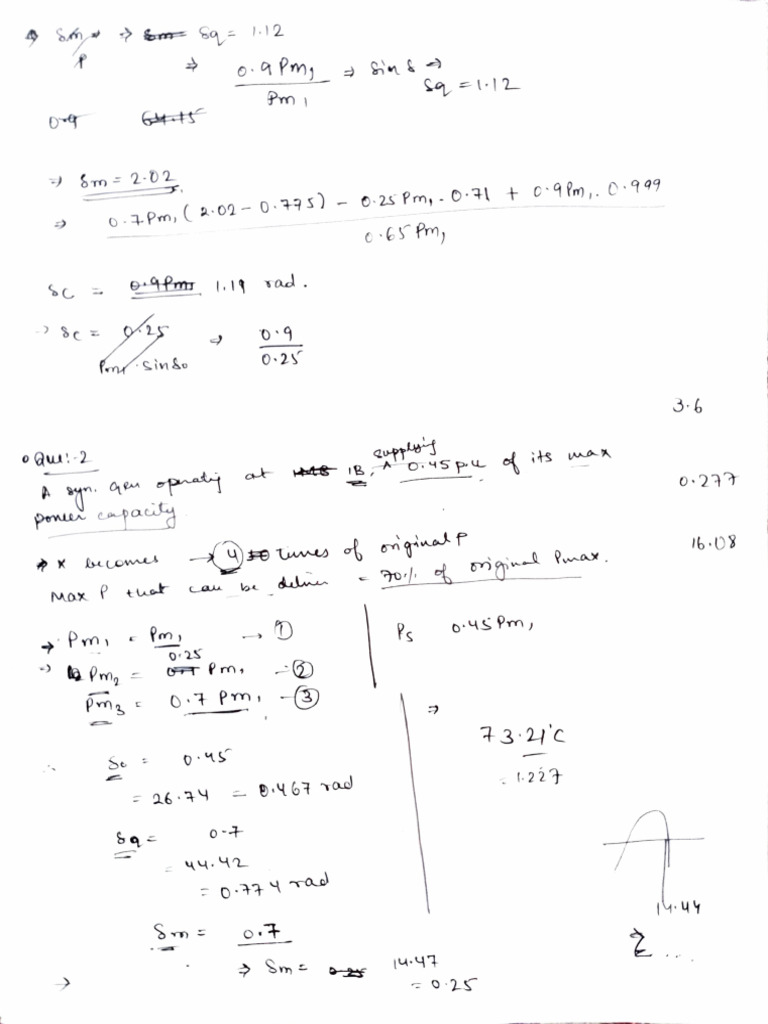 ⇒ δq = 1.12
⇒ 0.9Pm1 / Pm1 ⇒ sin δ ⇒ δq = 1.12
0.9
⇒ δm = 2.02
⇒ 0.7Pm1 (2.02 - 0.775) - 0.25Pm1 . 0.71 + 0.9Pm1 . 0.999 / 0.65 Pm1
δc = 1.19 rad.
⇒ δc = 0.25 / Pm1 . sin δo ⇒ 0.9 / 0.25
3.6
• Que:-2
A syn. gen operatig at IB, supplying 0.45 p.u of its max
power capacity
0.277
⇒ x becomes → 4 times of original P
16.08
Max P that can be deliver = 70% of original Pmax.
→ Pm1 = Pm1 → ①
Ps 0.45Pm1
⇒ Pm2 = 0.25 Pm1 - ②
Pm3 = 0.7 Pm1 - ③
⇒
73.21°C
= 1.227
∴ δo = 0.45
= 26.74 = 0.467 rad
δq = 0.7
= 44.42
= 0.774 rad
14.44
δm = 0.7
⇒ δm = 14.47
= 0.25
→